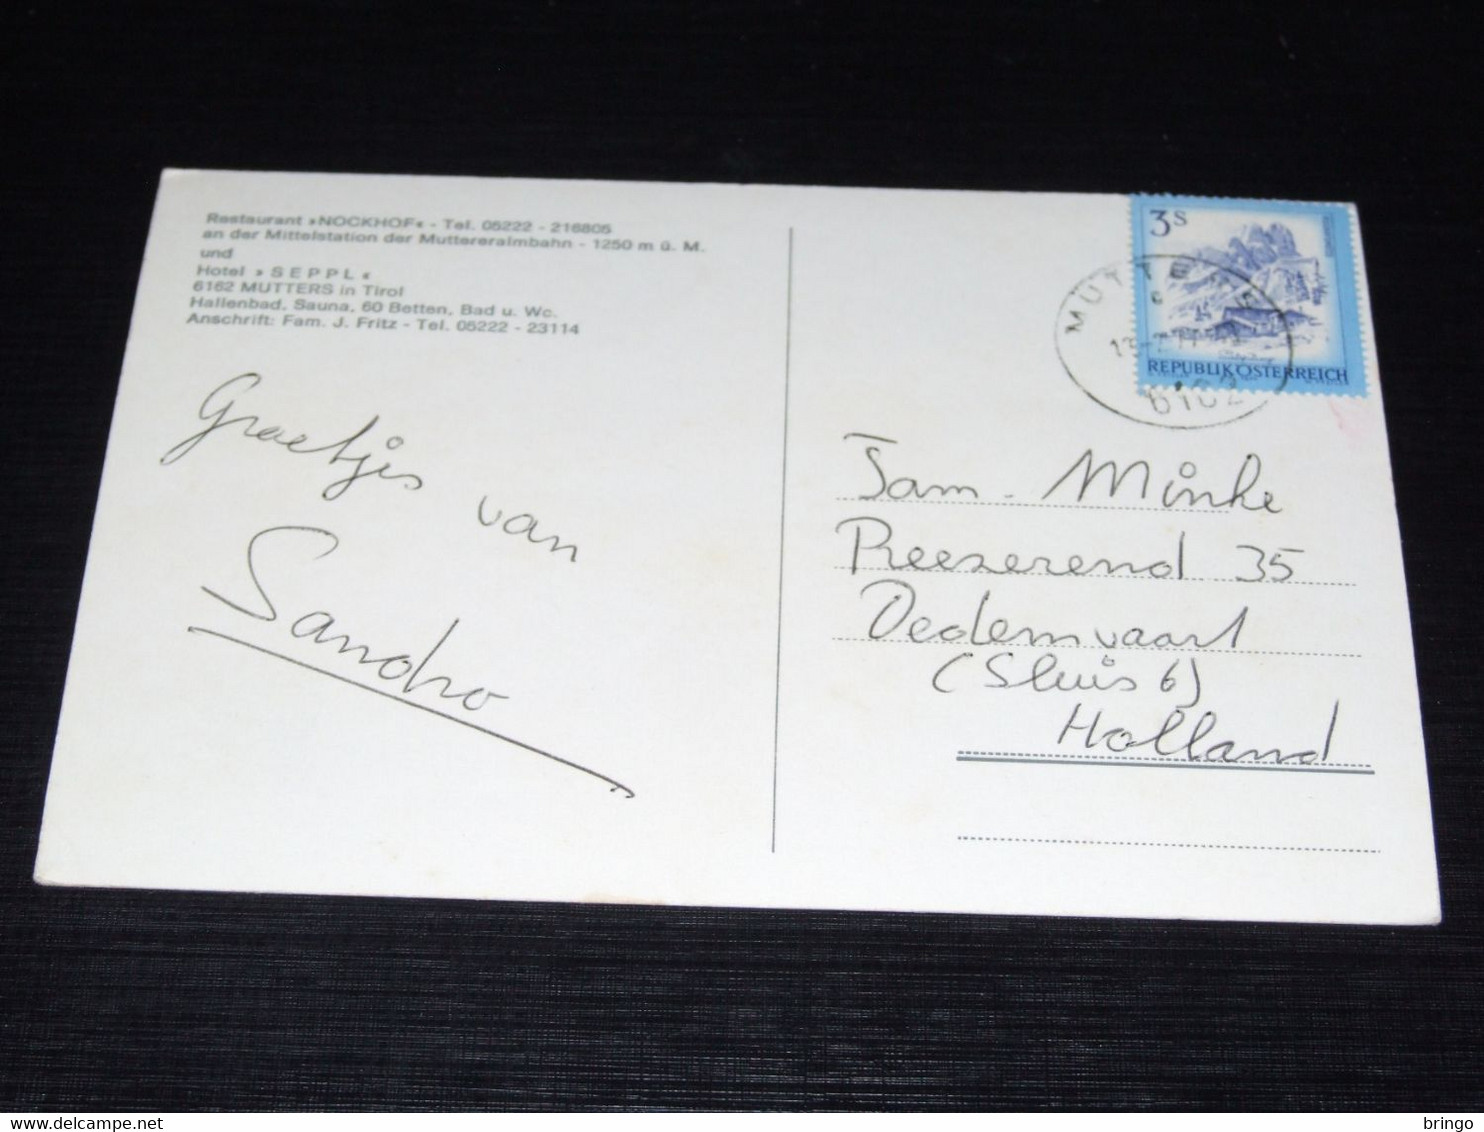 Restaurant »NOCKHOF« - Tel. 05222 - 216805
an der Mittelstation der Muttereralmbahn - 1250 m ü. M.
und
Hotel »SEPPL«
6162 MUTTERS in Tirol
Hallenbad, Sauna, 60 Betten, Bad u. Wc.
Anschrift: Fam. J. Fritz - Tel. 05222 - 23114
Groetjes van
Sandro
3 S
REPUBLIK ÖSTERREICH
6162
Fam. Minke
Reeserend 35
Dedemvaart
(Sluis 6)
Holland
delcampe.net
bringo